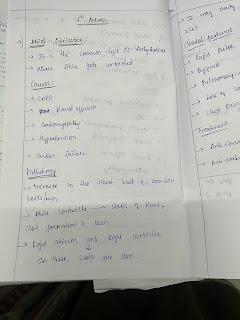 5th Answer
a) Atrial Fibrillation:
→ It is the common type of Arrhythmias
→ Where Atria gets contracted
Causes:
→ COPD
→ effusion
→ Cardiomyopathy
→ Hypertension
→ Cardiac failure
Pathology
→ Increase in the Heart beat i.e.,
beats/min
→ Atria contracts → stasis of blood,
Clot formation is seen
→ Right atrium and Right Ventricles
In these, Clots are seen
→ It may
also
Clinical features
→ Rapid Pulse
→ Dyspnea
→ Pulmonary
→ Loss of
→ Chest pain
Treatment
→ Anti Coa
→ Anti